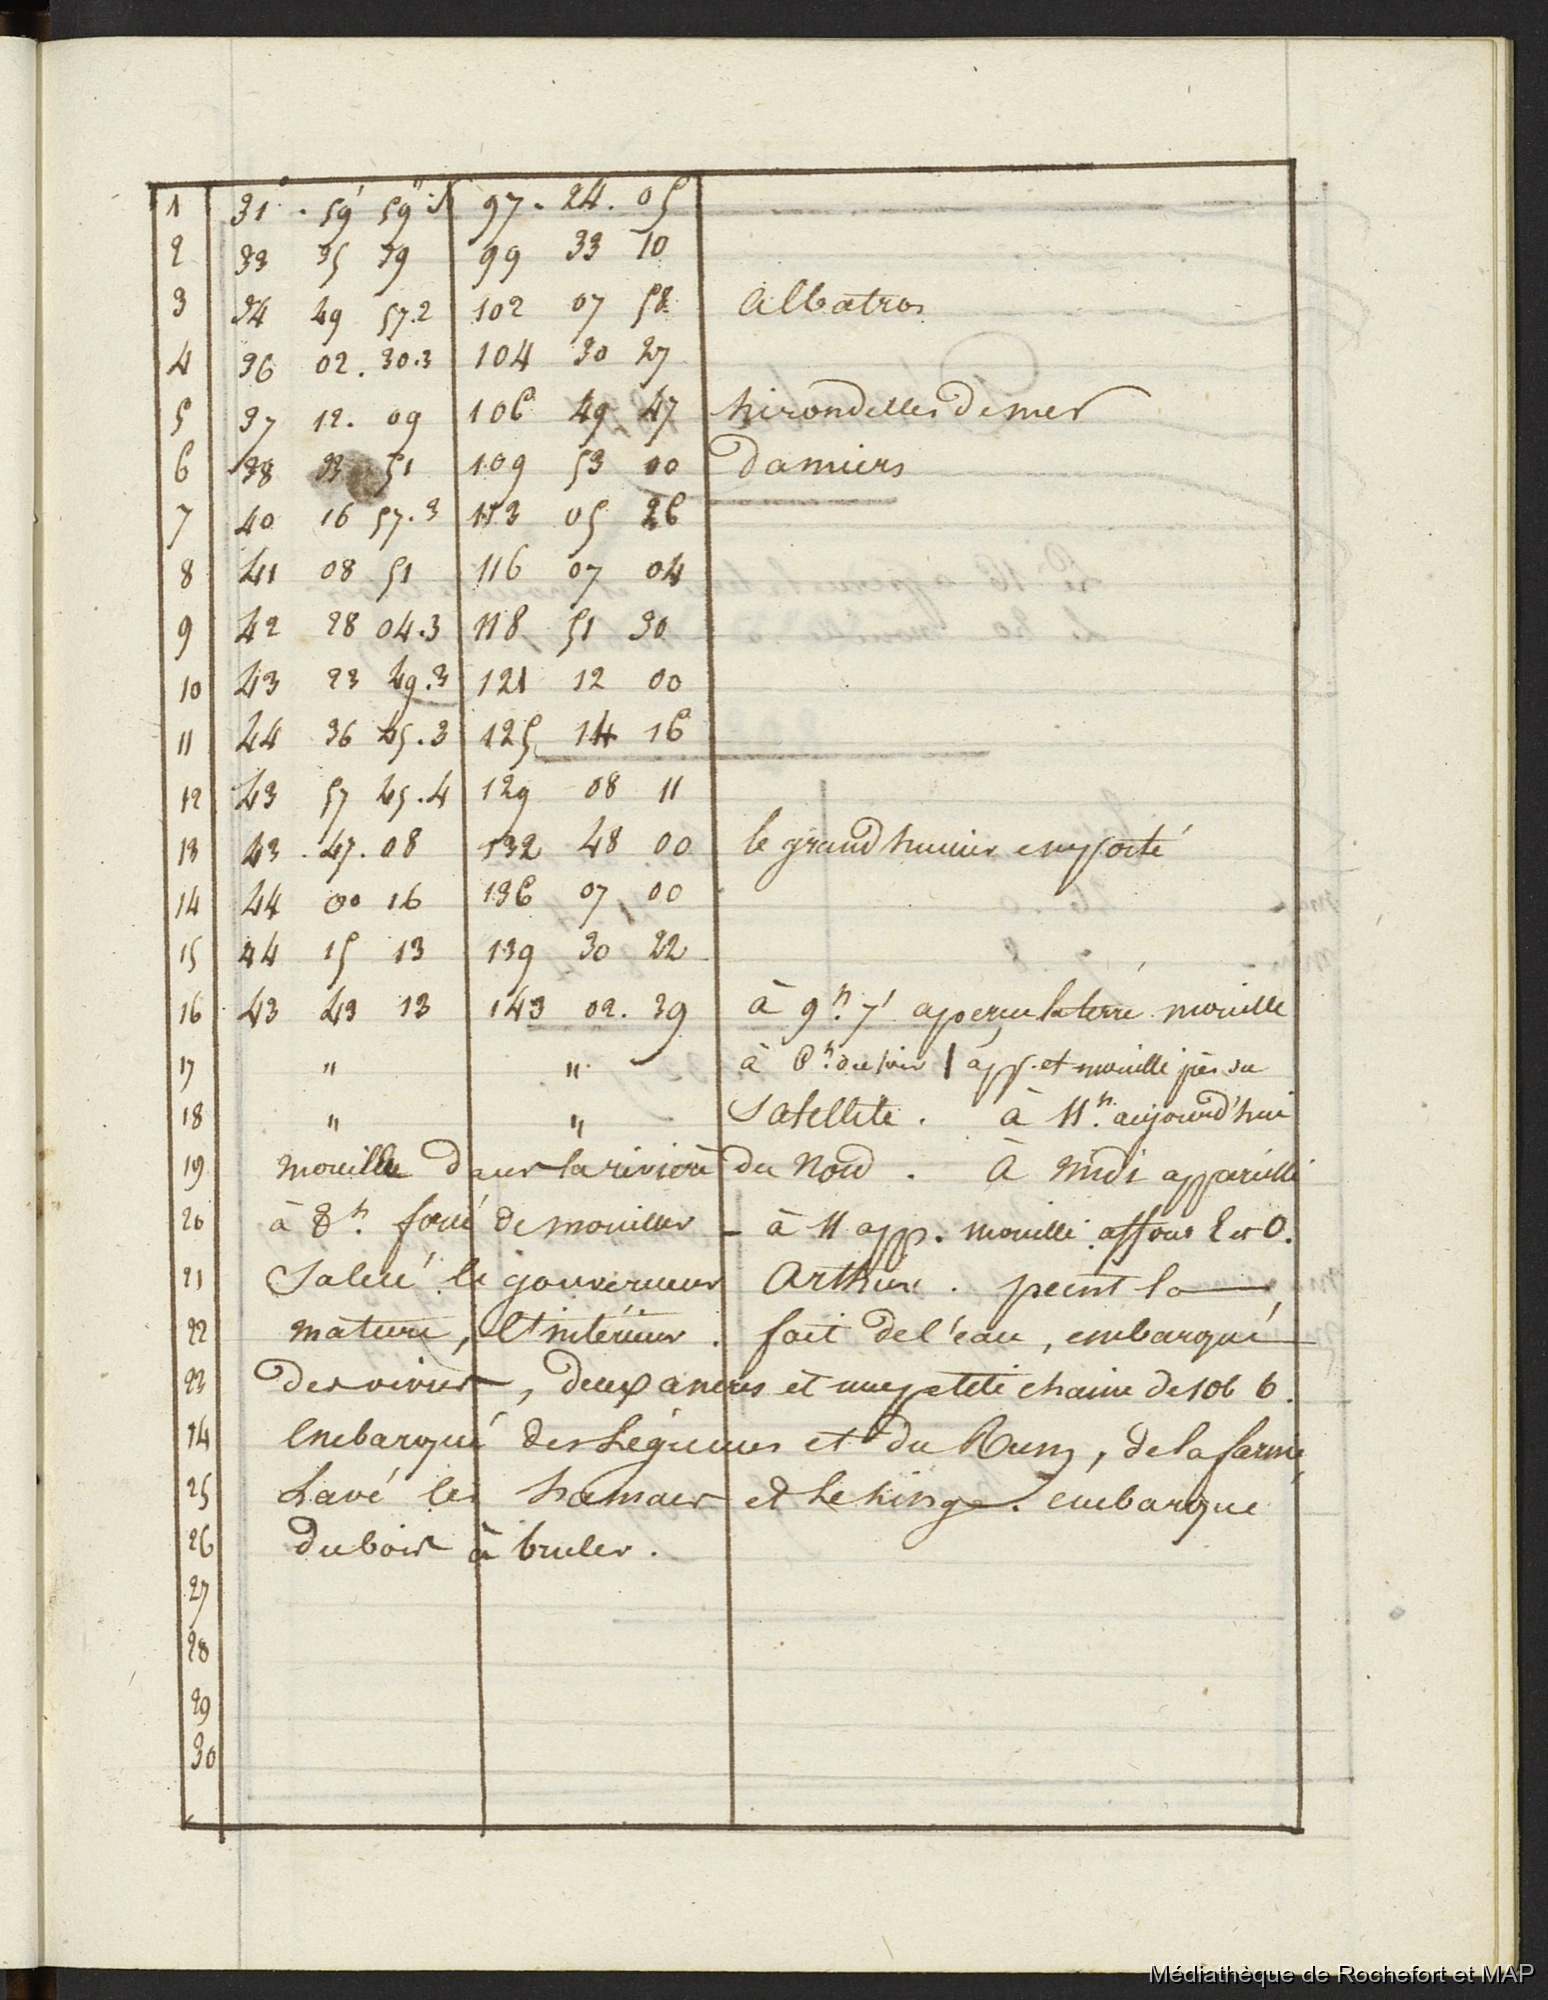 1 31° . 59' 59" .5 97 . 24 . 05
2 33 35 39 99 33 10
3 34 49 57.2 102 07 58 albatros
4 36 02 . 30.3 104 30 27
5 37 12 . 09 106 49 47 hirondelles de mer
6 38 33 51 109 53 00 damiers
7 40 16 57.3 113 05 26
8 41 08 51 116 07 04
9 42 28 04.3 118 51 30
10 43 23 49.3 121 12 00
11 44 36 45.3 125 14 16
12 43 57 45.4 129 08 11
13 43 . 47 . 08 132 48 00 le grand hunier emporté
14 44 00 16 136 07 00
15 44 15 13 139 30 22
16 43 43 13 143 02 . 39 à 9h. 7' aperçu la terre mouille
17 " " à 6h. du soir / app. et mouillé près du
18 " " Satellite . à 11h. aujourd'hui
19 mouille dans la rivière du Nord . à midi appareillé
20 à 8h. forcé de mouiller - à 11 app. mouillé affour E et O.
21 Salué le gouverneur Arthur . peint la
22 mature, l'intérieur . fait de l'eau, embarqué
23 des vivres, deux ancres et une petite chaine de 106 b.
24 Embarqué des légumes et du Rum, de la farine
25 Lavé les hamacs et le linge. embarqué
26 du bois à bruler .
27
28
29
30
Médiathèque de Rochefort et MAP